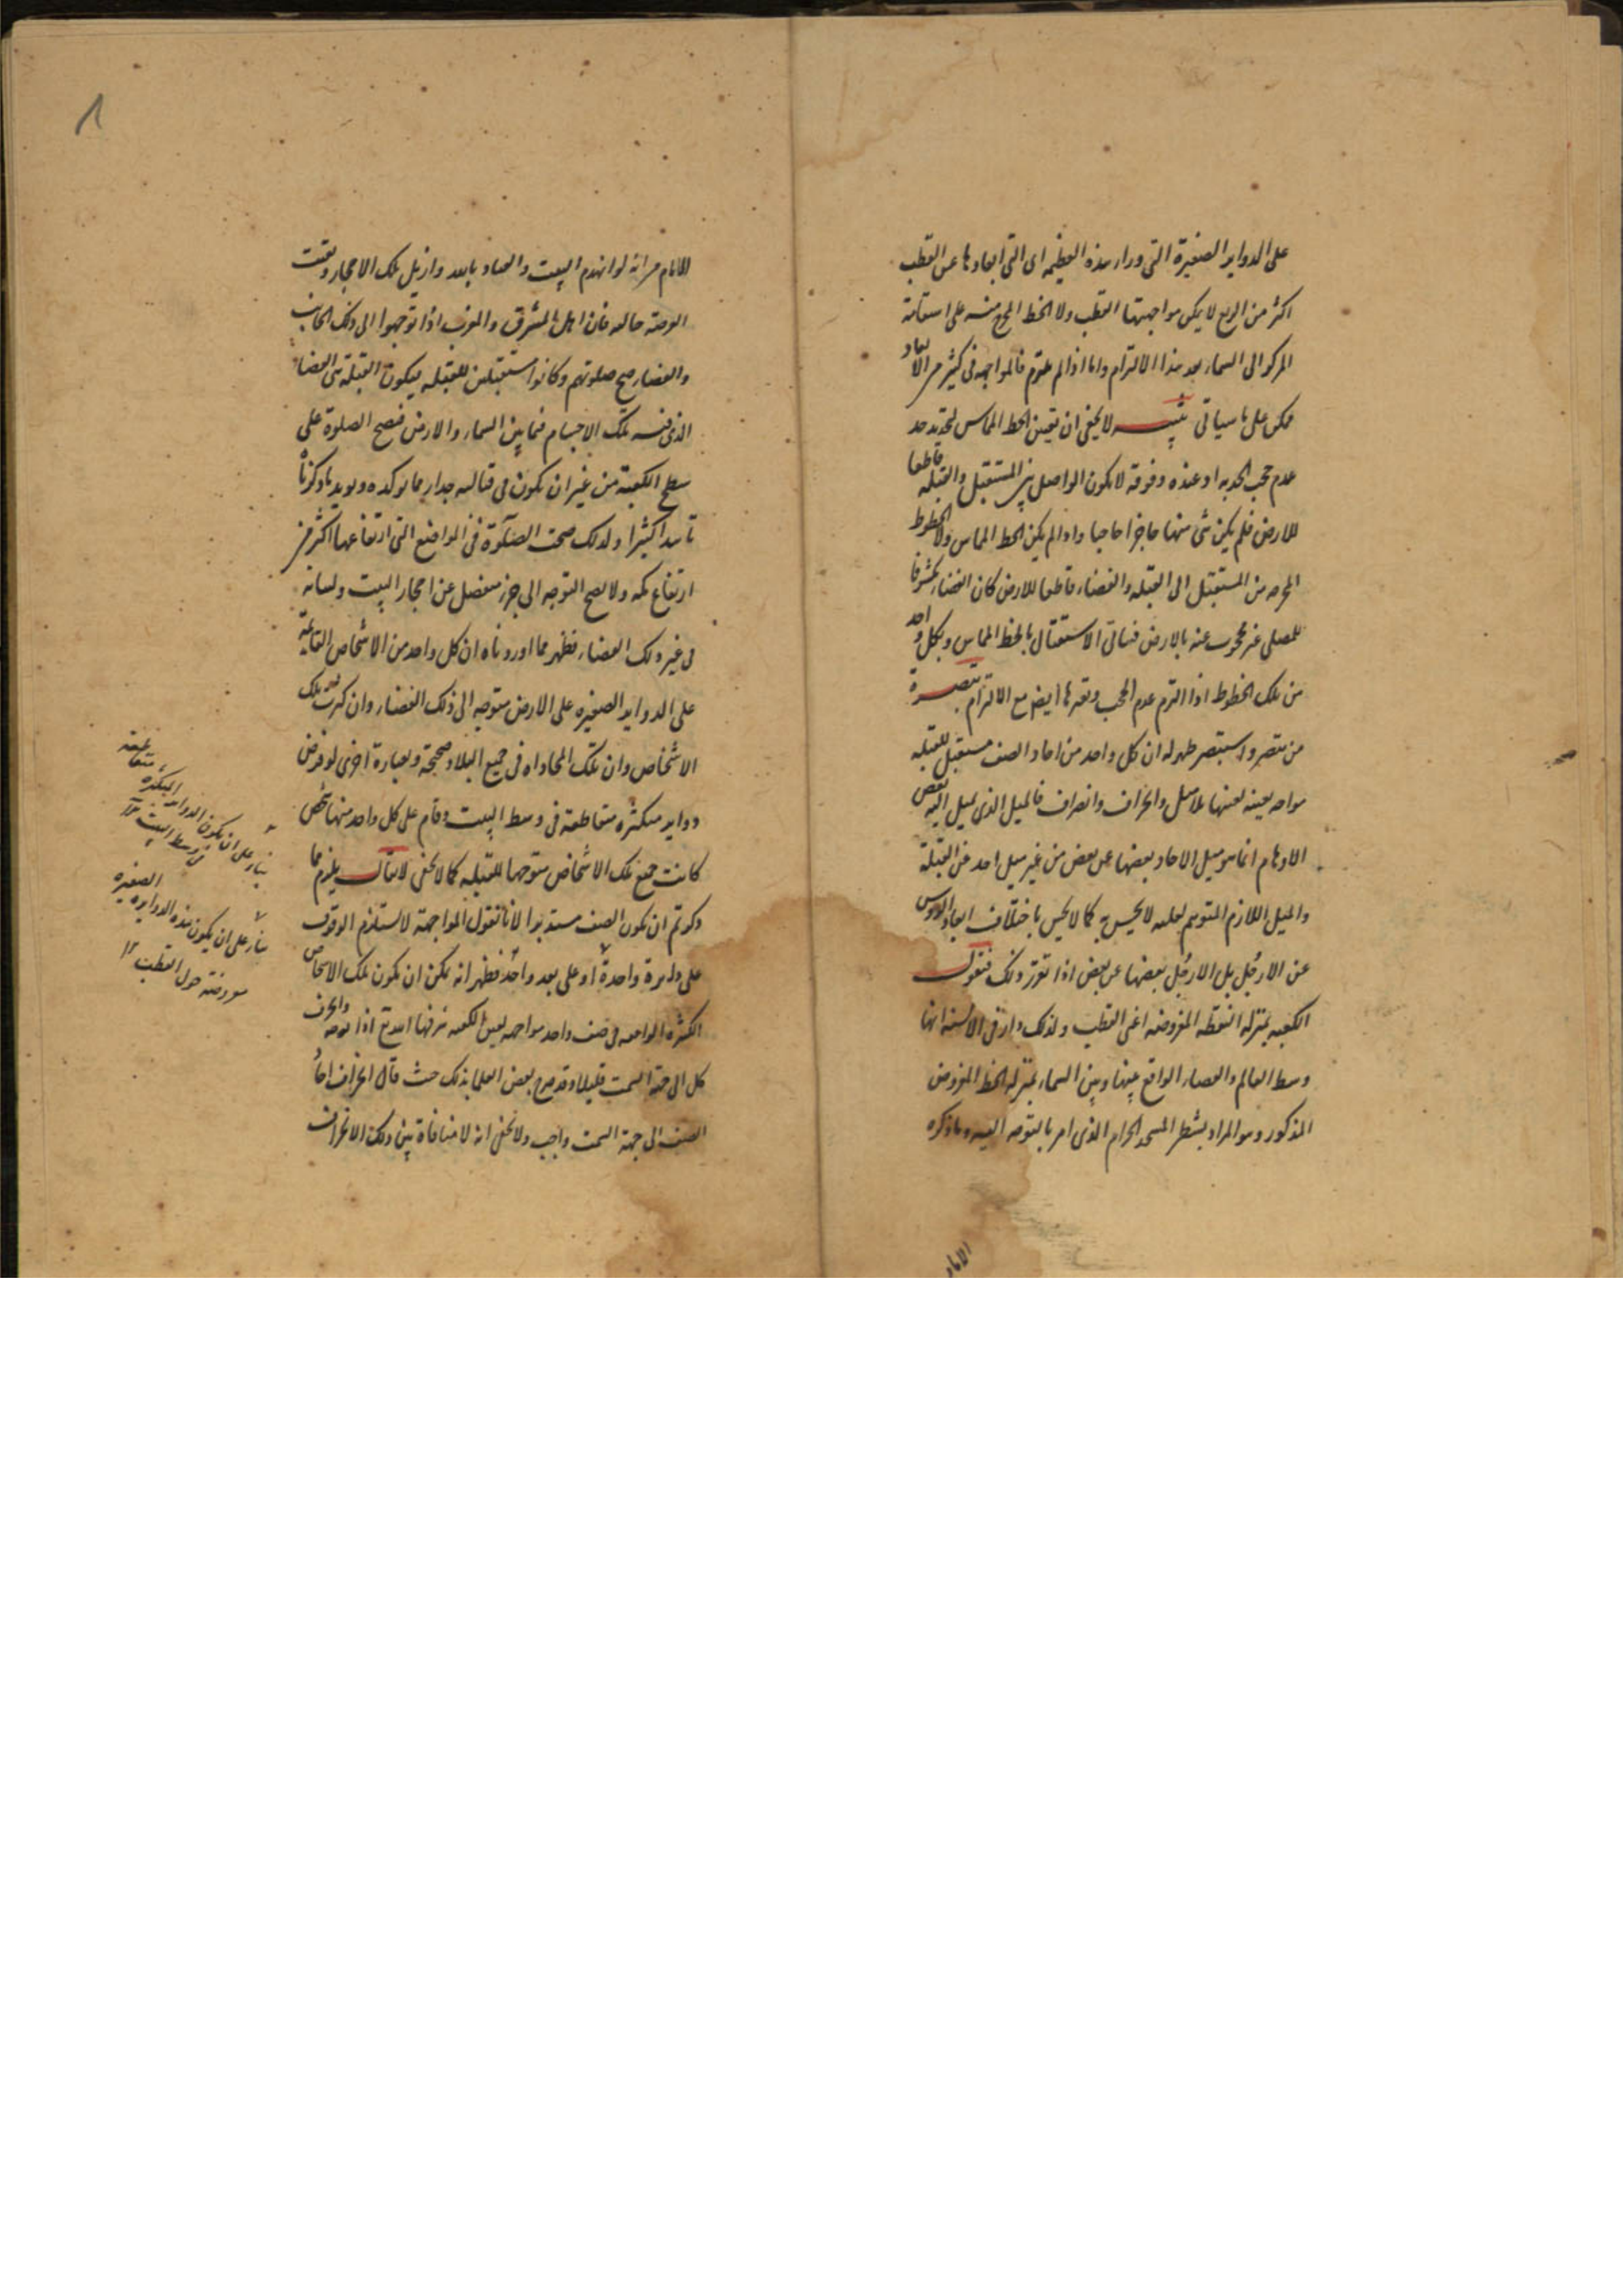 على الدواير الصغيرة التى وراء هذه العظيمه اى التى ابعادها عن القطب
اكثر من الربع لا يمكن مواجهتها القطب ولا الخط المخرج منه على استقامة
المركز الى السماء بعد هذا الالتزام واما اذا لم يلتزم فالمواجهه فى كثير من الابعاد
ممكن على ما سياتى تنبيه لا يخفى ان تعيين الخط المماس لتحديد حد
عدم حجب الحدبه او عنده وفوقه لا يكون الواصل بين المستقبل والقبله قاطعا
للارض فلم يكن شى منها حاجزا حاجبا واذا لم يكن الخط المماس ولا الخطوط
المخرجه من المستقبل الى القبله والفضاء قاطعا للارض كان الفضاء مكشوفا
للمصلى غير محجوب عنه بالارض فيتاتى الاستقبال بالخط المماس وبكل واحد
من تلك الخطوط اذا التزم عدم الحجب وبغيرها ايضا مع الالتزام تبصرة
من تبصر واستبصر ظهر له ان كل واحد من احاد الصف مستقبل للقبله
مواجه بعينه لعينها بلا ميل وانحراف وانصراف فالميل الذى يميل اليه بعض
الاوهام انما هو ميل الاحاد بعضها عن بعض من غير ميل احد عن القبلة
والميل اللازم المتوهم لعله لا يحس به كما لا يحس باختلاف ابعاد الرؤس
عن الارجل بل الارجل بعضها عن بعض اذا تقرر ذلك فنقول
الكعبه بمنزله النقطه المفروضه اعنى القطب ولذلك دار فى الالسنه انها
وسط العالم والفضاء الواقع بينها وبين السماء بمنزله الخط المفروض
المذكور وهو المراد بشطر المسجد الحرام الذى امر بالتوجه اليه وما ذكره
الامام
الامام من انه لو انهدم البيت والعياذ بالله وازيل تلك الاحجار وبقيت
العرصه خاليه فان اهل المشرق والمغرب اذا توجهوا الى ذلك الجانب
والفضاء صح صلوتهم وكانوا مستقبلين للقبله فيكون القبله هى الفضاء
الذى فيه تلك الاجسام فيما بين السماء والارض فصح الصلوة على
سطح الكعبة من غير ان يكون فى قبالته جدار مما يوكده ويويد ما ذكرنا
تاييدا كثيرا ولذلك صحت الصلوة فى المواضع التى ارتفاعها اكثر من
ارتفاع مكه ولا يصح التوجه الى جزء منفصل عن احجار البيت ولبناته
فى غير ذلك الفضاء فظهر مما اوردناه ان كل واحد من الاشخاص القائمة
على الدواير الصغيره على الارض متوجه الى ذلك الفضاء وان كثرت تلك
الاشخاص وان تلك المحاذاه فى جميع البلاد صحيحة وبعبارة اخرى لو فرض
دواير متكثره متقاطعة فى وسط البيت وقام على كل واحد منها شخص
كانت جميع تلك الاشخاص متوجها للقبله كما لا يخفى لا يقال يلزم مما
ذكرتم ان يكون الصف مستديرا لانا نقول المواجهة لا يستلزم الوقوف
على دايرة واحدة او على بعد واحد فظهر انه يمكن ان يكون تلك الاشخاص
الكثيره الواقعه فى صف واحد مواجهه لعين الكعبه شرفها الله تع اذا توجه وانحرف
كل الى جهة السمت قليلا وقد صرح بعض العلما بذلك حيث قال انحراف احاد
الصف الى جهة السمت واجب ولا يخفى انه لا منافاة بين ذلك الانحراف
بناء على ان يكون الدواير المتكثره متقاطعه
فى وسط البيت ١٢
بناء على ان يكون هذه الدوايره الصغيره
مفروضة حول القطب ١٢